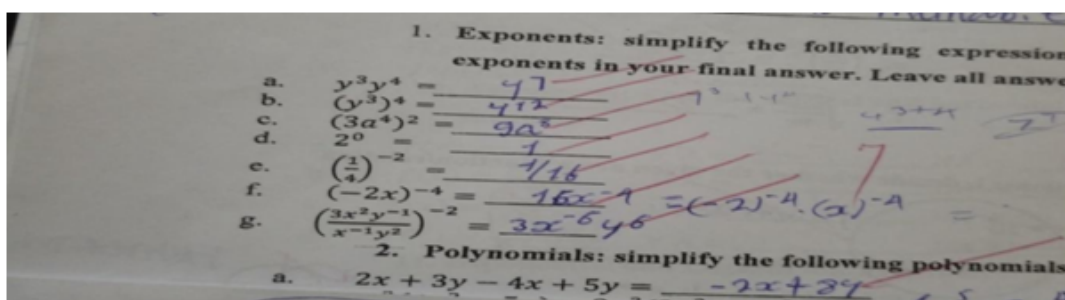 1. Exponents: simplify the following expression
exponents in your final answer. Leave all answe
a. y³y⁴ = y7
b. (y³)⁴ = y12
c. (3a⁴)² = 9a⁸
d. 2⁰ = 1
e. (1/4)⁻² = 1/16
f. (−2x)⁻⁴ = 16x⁻⁴ = (-2)⁻⁴.(x)⁻⁴ =
g. (3x²y⁻¹/x⁻¹y²)⁻² = 3x⁻⁶y⁶
2. Polynomials: simplify the following polynomials
a. 2x + 3y − 4x + 5y = -2x+8y